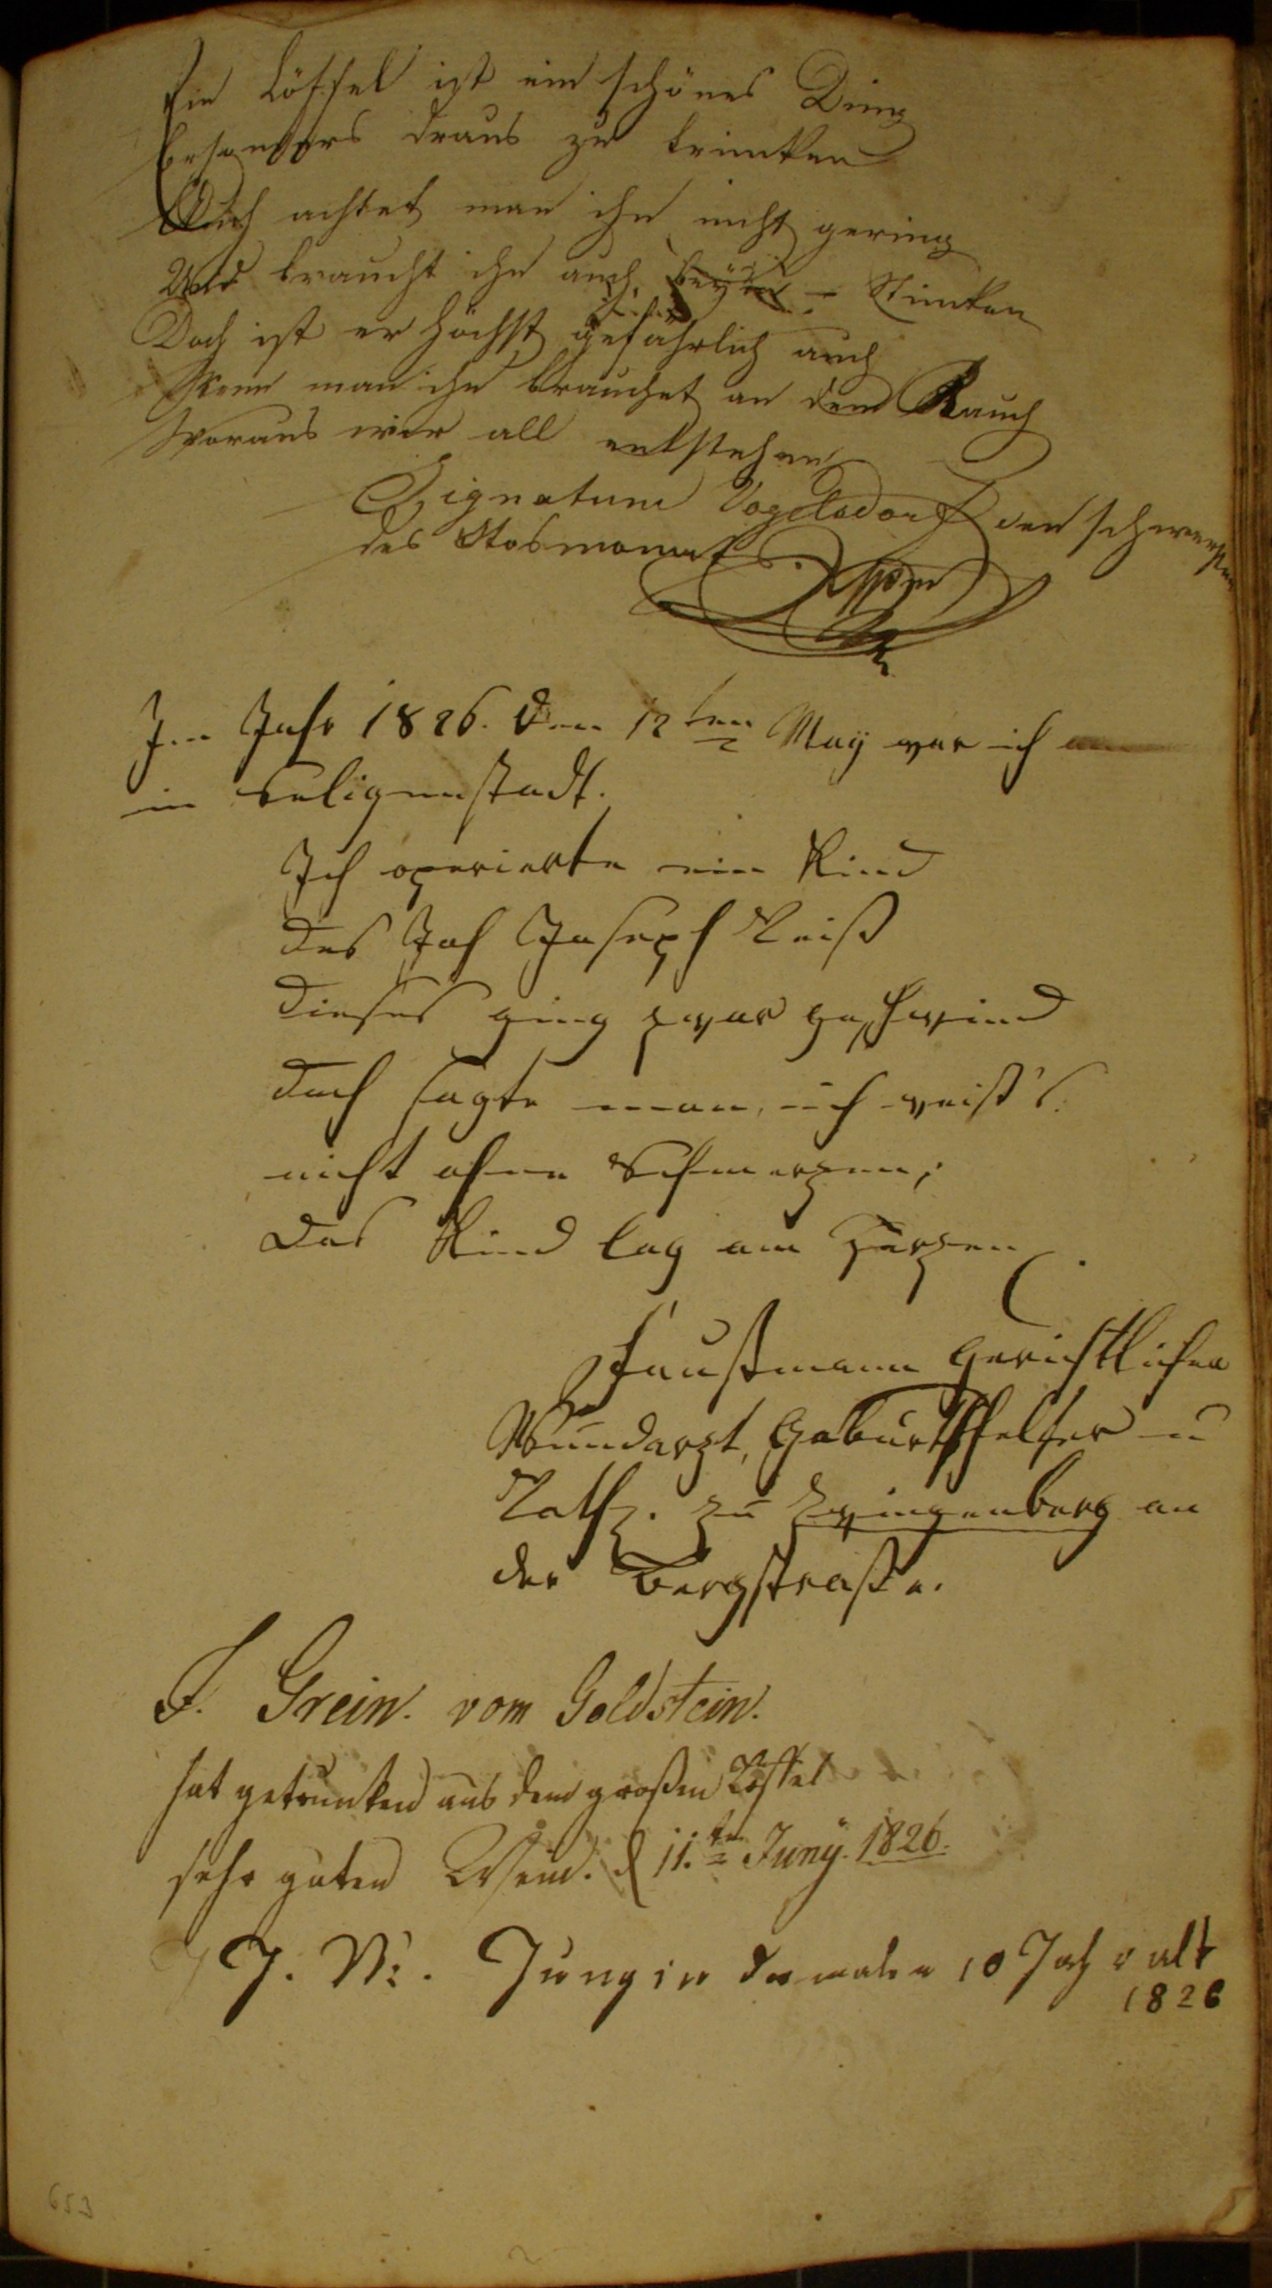 Ein Löffel ist ein schönes Ding
besonders draus zu trincken
Auch achtet man ihn nicht gering
Und braucht ihn auch - Stincken
Doch ist er höchst gefährlich auch
Wenn man ihn brauchet an dem Bauch
Woraus wir all entstehen
Signatum Vogelsdorf den schwersten
des Monat
Im Jahr 1826. den 12ten May war ich
in Seligenstadt.
Ich operierte ein Kind
des Joh Joseph Reiß
dieses ging zwar geschwind
doch sagte man, ich weiß's.
nicht ohne Schmerzen;
Das Kind lag am Herzen
Faustmann Gerichtlicher
Wundarzt, Geburtshelfer u
zu Zwingenberg an
der Bergstraße.
F. Grein. vom Goldstein.
hat getruncken aus dem großen Löffel
sehr guten Wein. d 11.ten Juny. 1826.
J. W. Jung in damalen 10 Jahr alt
1826
653